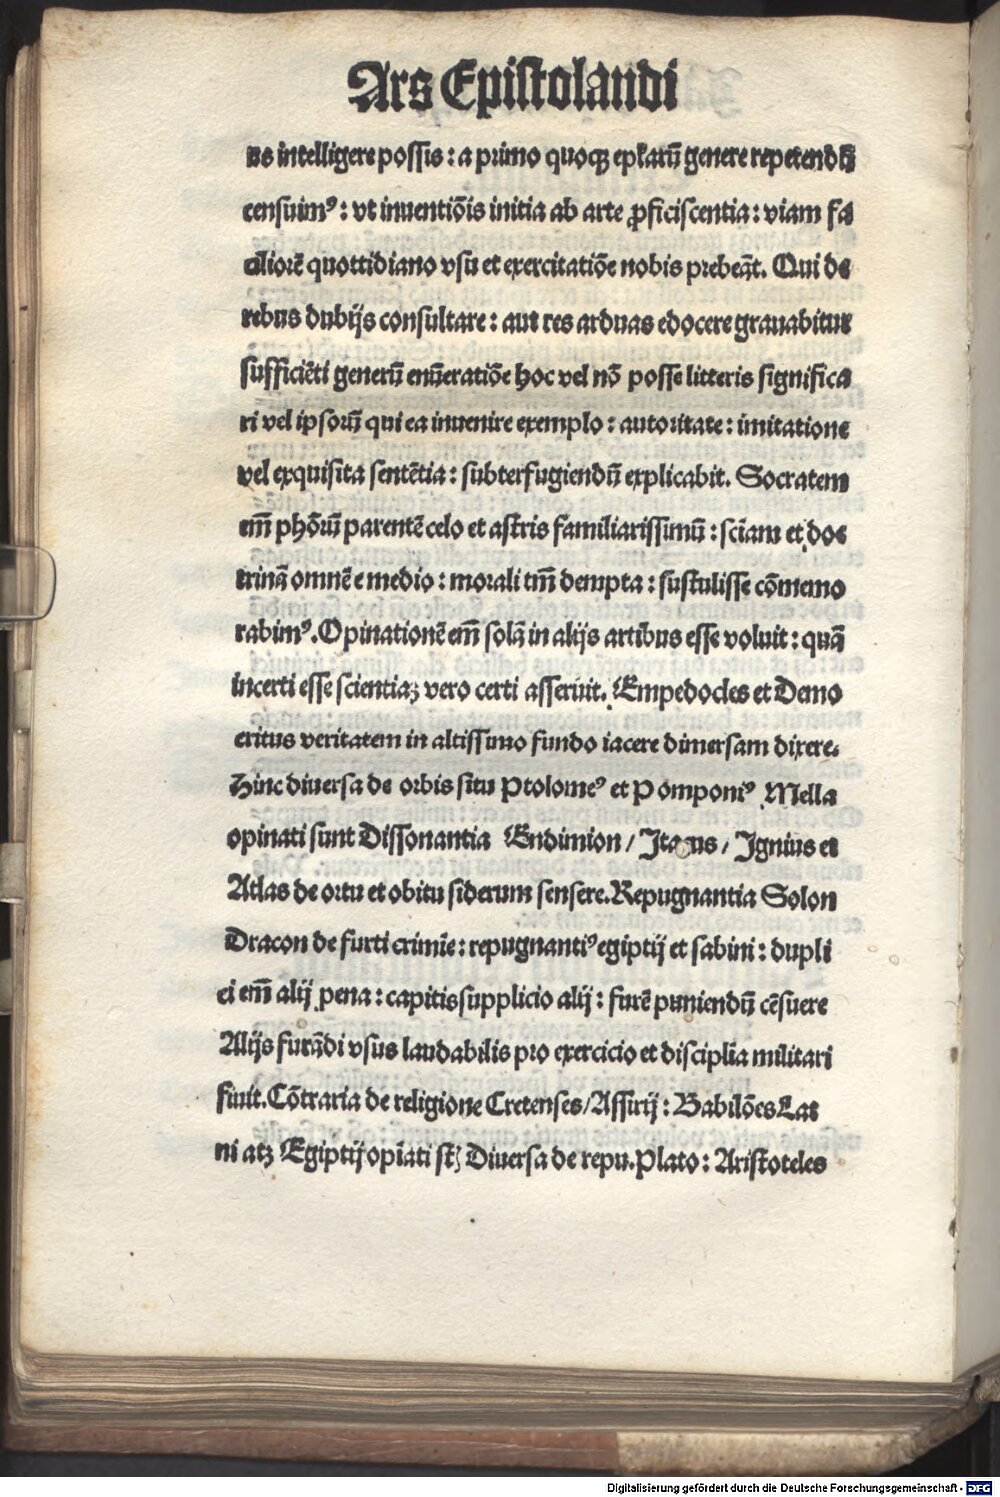 Ars Epistolandi
us intelligere possis : a primo quoqꝫ epl'arū genere repetendū
censuimꝰ : vt inuentiōis initia ab arte ꝓficiscentia : viam fa
ciliorē quottidiano vsu et exercitatiōe nobis prebeāt. Qui de
rebus dubijs consultare : aut res arduas edocere grauabitur
sufficiēti generū enūeratiōe hoc vel nō posse litteris significa
ri vel ipsorū qui ea inuenire exemplo : autoritate : imitatione
vel exquisita sentētia : subterfugiendū explicabit. Socratem
em̄ phōrū parentē celo et astris familiarissimū : sciam et doc
trinā omnē e medio : morali tm̄ dempta : sustulisse cōmemo
rabimꝰ. Opinationē em̄ solā in alijs artibus esse voluit : quā
incerti esse scientiaꝫ vero certi asseruit. Empedocles et Demo
critus veritatem in altissimo fundo iacere dimersam dixere.
Hinc diuersa de orbis situ Ptolomeꝰ et Pomponiꝰ Mella
opinati sunt Dissonantia Endimion / / Ignius et
Atlas de ortu et obitu siderum sensere. Repugnantia Solon
Dracon de furti crimīe : repugnantiꝰ egiptij et sabini : dupli
ci em̄ alij pena : capitis supplicio alij : furē puniendū cēsuere
Alijs furādi vsus laudabilis pro exercicio et disciplia militari
fiuit. Cōtraria de religione Cretenses / Assirij : Babilōes Lat
ni atꝫ Egiptij opīati st̄ Diuersa de repu. Plato : Aristoteles
Digitalisierung gefördert durch die Deutsche Forschungsgemeinschaft - DFG